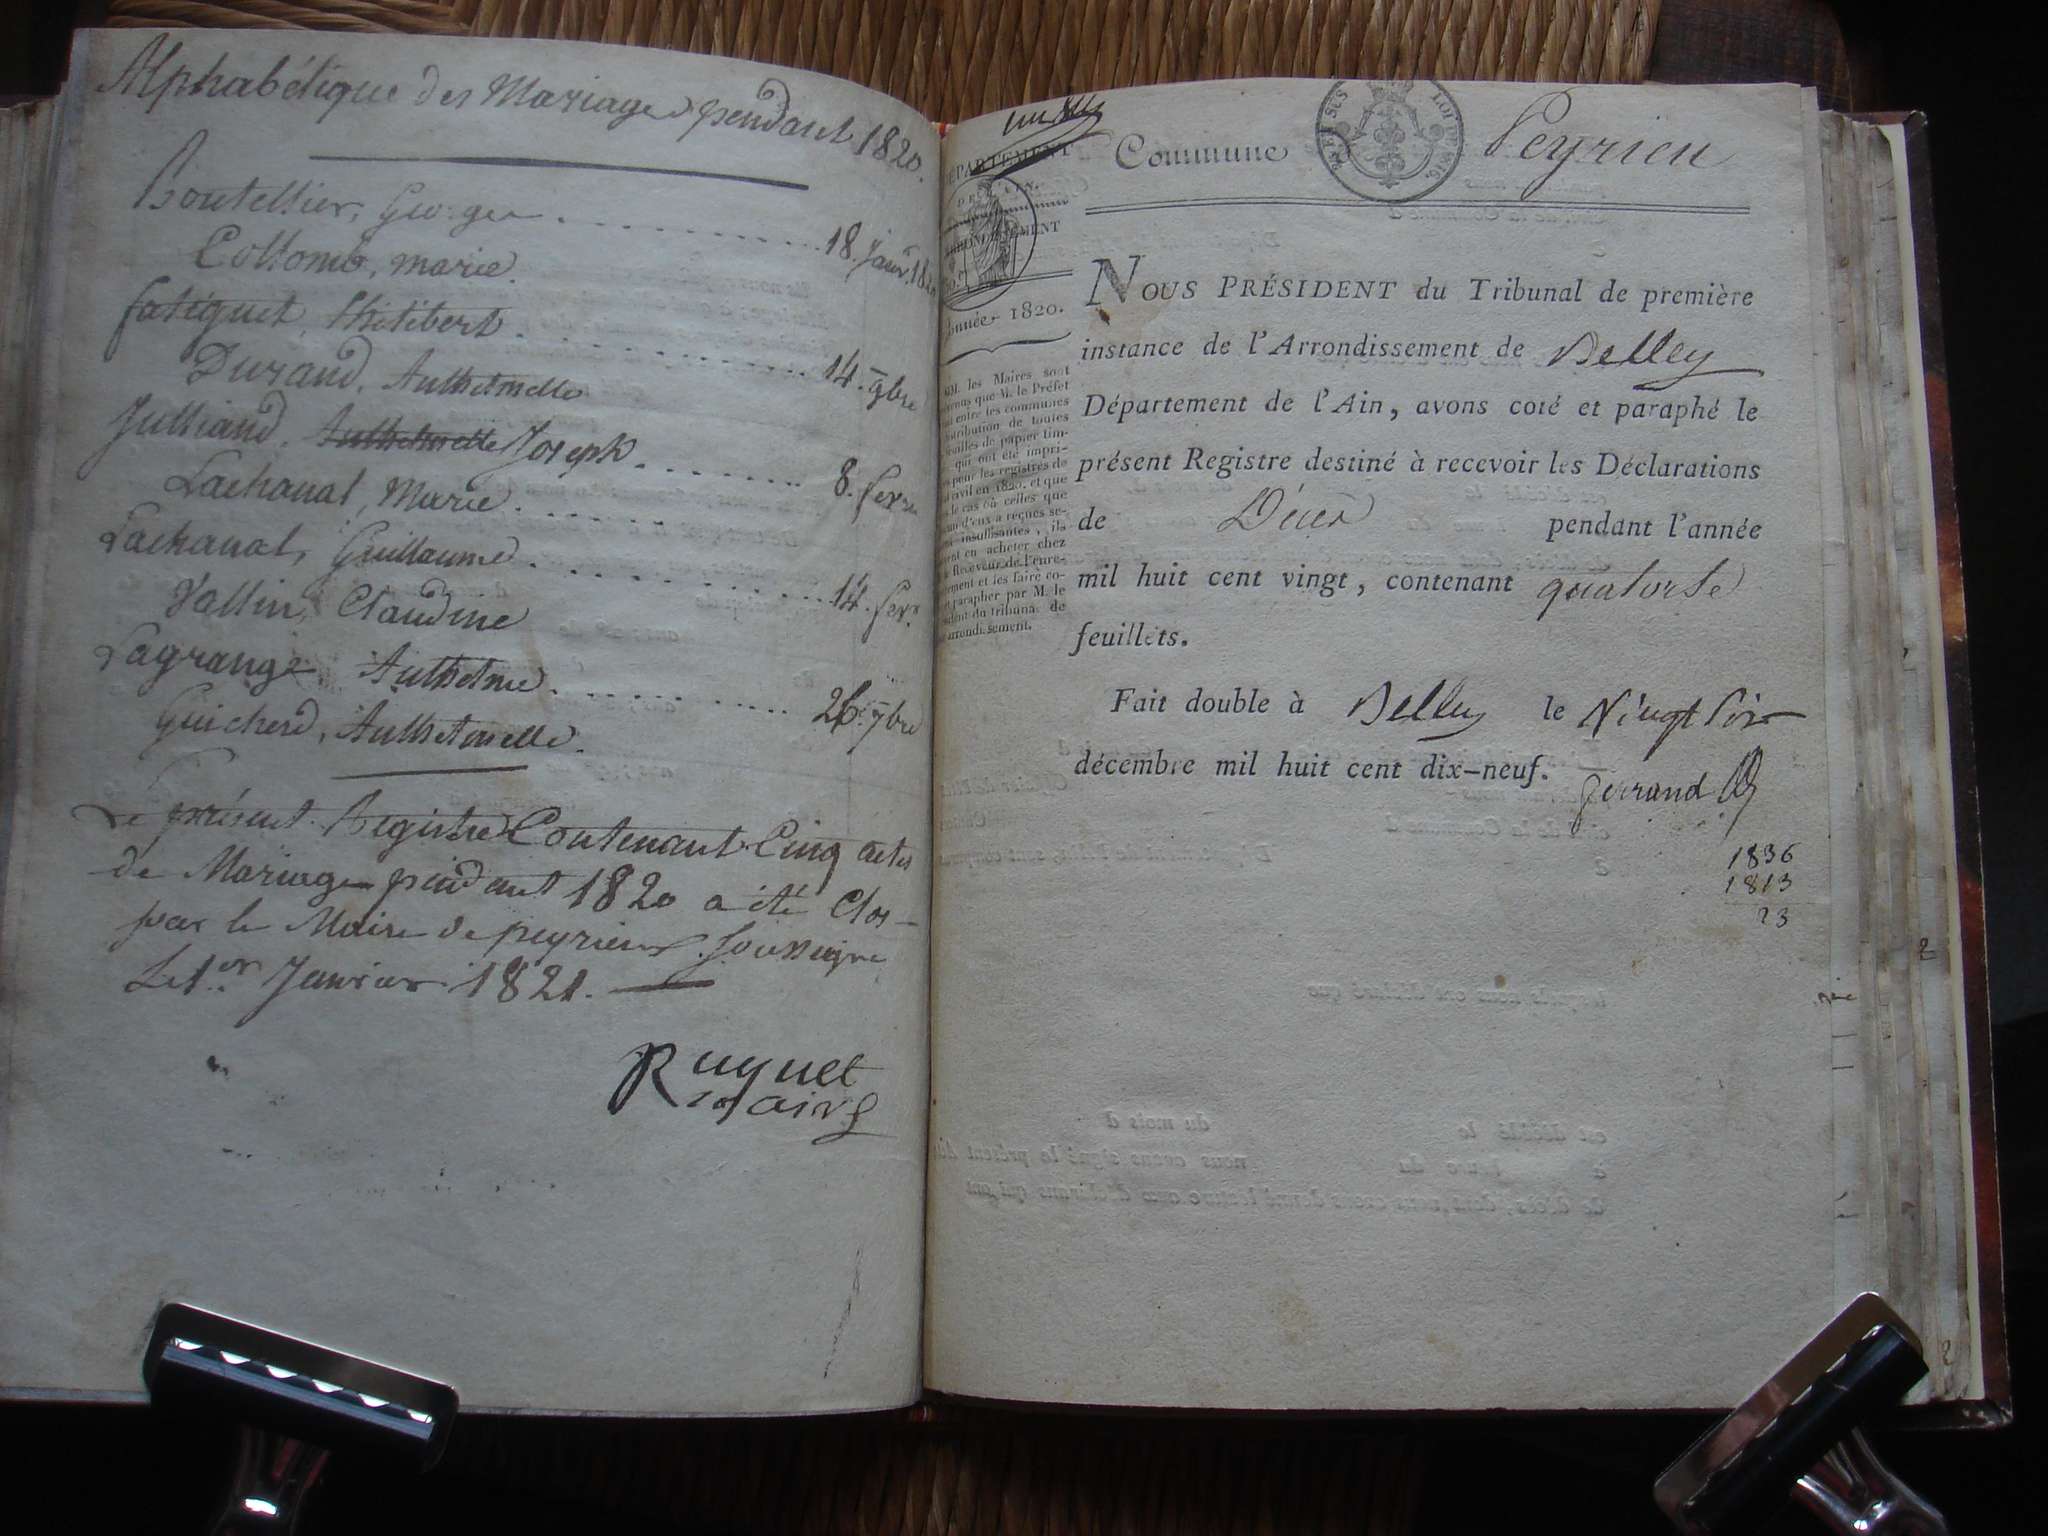 Alphabétique des Mariages pendant 1820.
Boutellier, George 18. Janv. 1820
Collomb, marie.
fatiguet, Philibert 14. 9bre
Durand, Anthelmette
Julliand, Anthelmette Joseph 8. fevr
Lachanal, Marie
Lachanal, Guillaume 14. fevr.
Vallin, Claudine
Lagrange Anthelme 26. 9bre
Guicherd, Anthelmette.
Le présent Registre Contenant Cinq actes
de Mariage pendant 1820 a été Clos
par le Maire de peyrieu Soussigné
Le 1.er Janvier 1821.
Ruquet
maire
DÉPARTEMENT
DE L'AIN.
ARRONDISSEMENT
Année 1820.
MM. les Maires sont
prévenus que M. le Préfet
entre les communes
distribution de toutes
feuilles de papier tim-
qui ont été impri-
pour les registres de
civil en 1820, et que
le cas où celles que
d'eux a reçues se-
insuffisantes, ils
en acheter chez
Receveur de l'enre-
et les faire co-
parapher par M. le
du tribunal de
arrondissement.
Commune Peyrieu
NOUS PRÉSIDENT du Tribunal de première
instance de l'Arrondissement de Belley
Département de l'Ain, avons coté et paraphé le
présent Registre destiné à recevoir les Déclarations
de Décès pendant l'année
mil huit cent vingt, contenant quatorze
feuillets.
Fait double à Belley le Vingt Six
décembre mil huit cent dix-neuf.
1836
1813
23